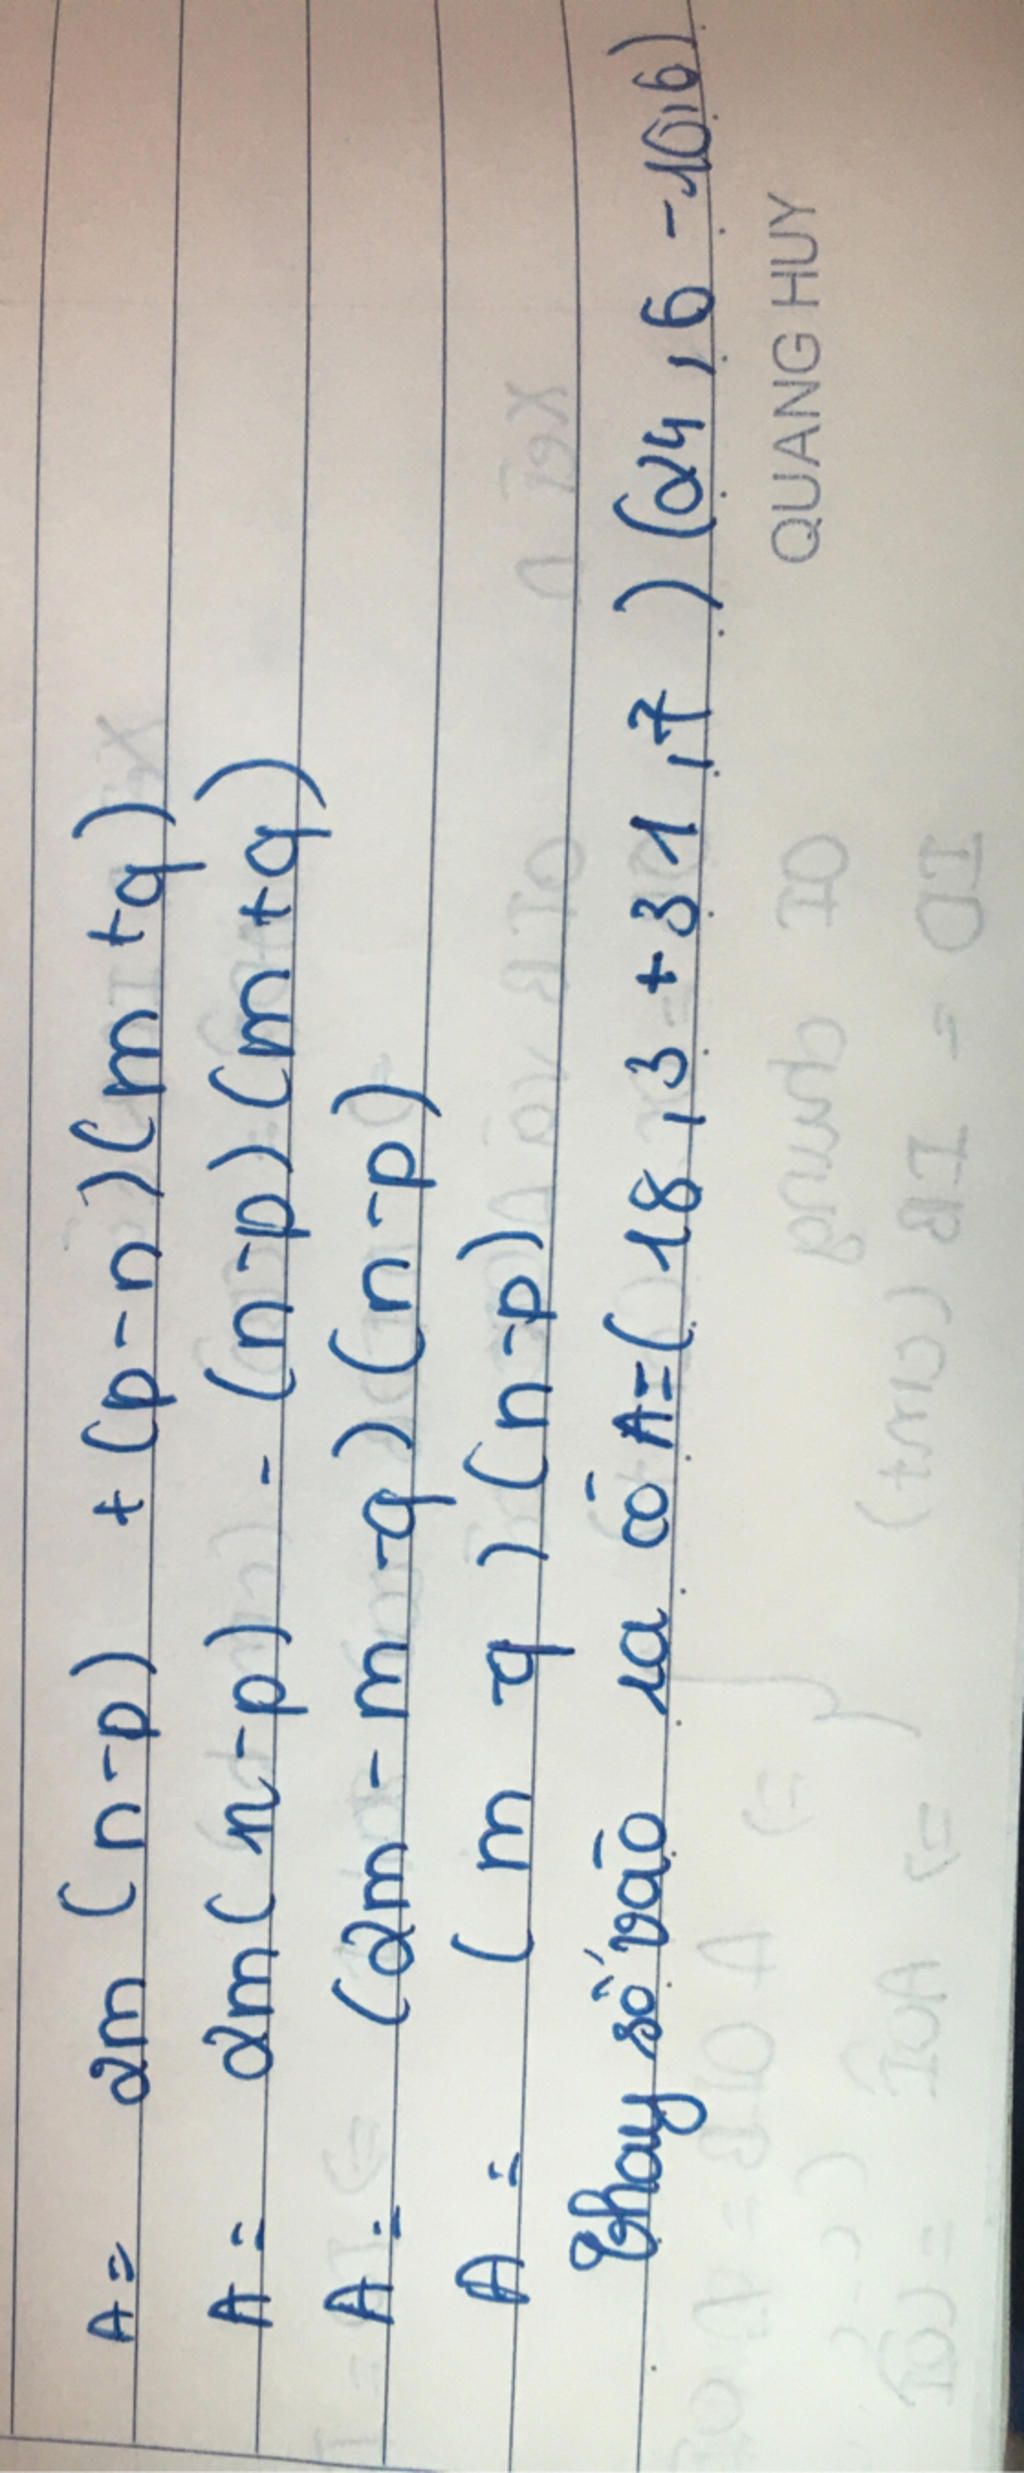 A = 2m (n-p) + (p-n)(m+q)
A = 2m(n-p) - (n-p)(m+q)
A = (2m-m-q)(n-p)
A = (m-q)(n-p)
Thay số vào ta có A=(18,3+31,7)(24,6-10,6)
QUANG HUY